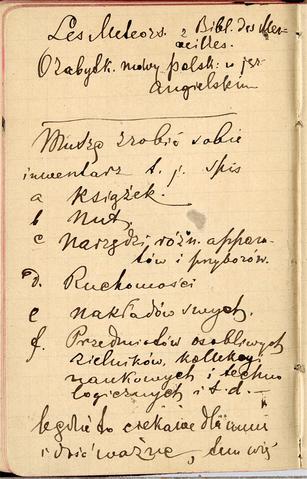 Les Meteors. z Bibl. des Mer-
veilles.
O zabytk. mowy polsk. w jęz.
angielskim
Muszę zrobić sobie
inwentarz t. j. spis
a książek.
b Nut.
c narzędzi, różn. appara-
tów i przyborów.
d. Ruchomości
e nakładów swych.
f. Przedmiotów osobliwych
zielników, kollekcyj
naukowych i techno
logicznych i t. d. —
będzie to ciekawe dla mnie
i dość ważne,